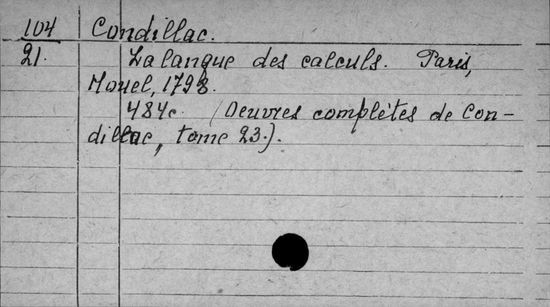 104 Condillac.
21. La langue des calculs. Paris,
Houel, 1798.
484c. (Oeuvres complètes de Con-
dillac, tome 23.).